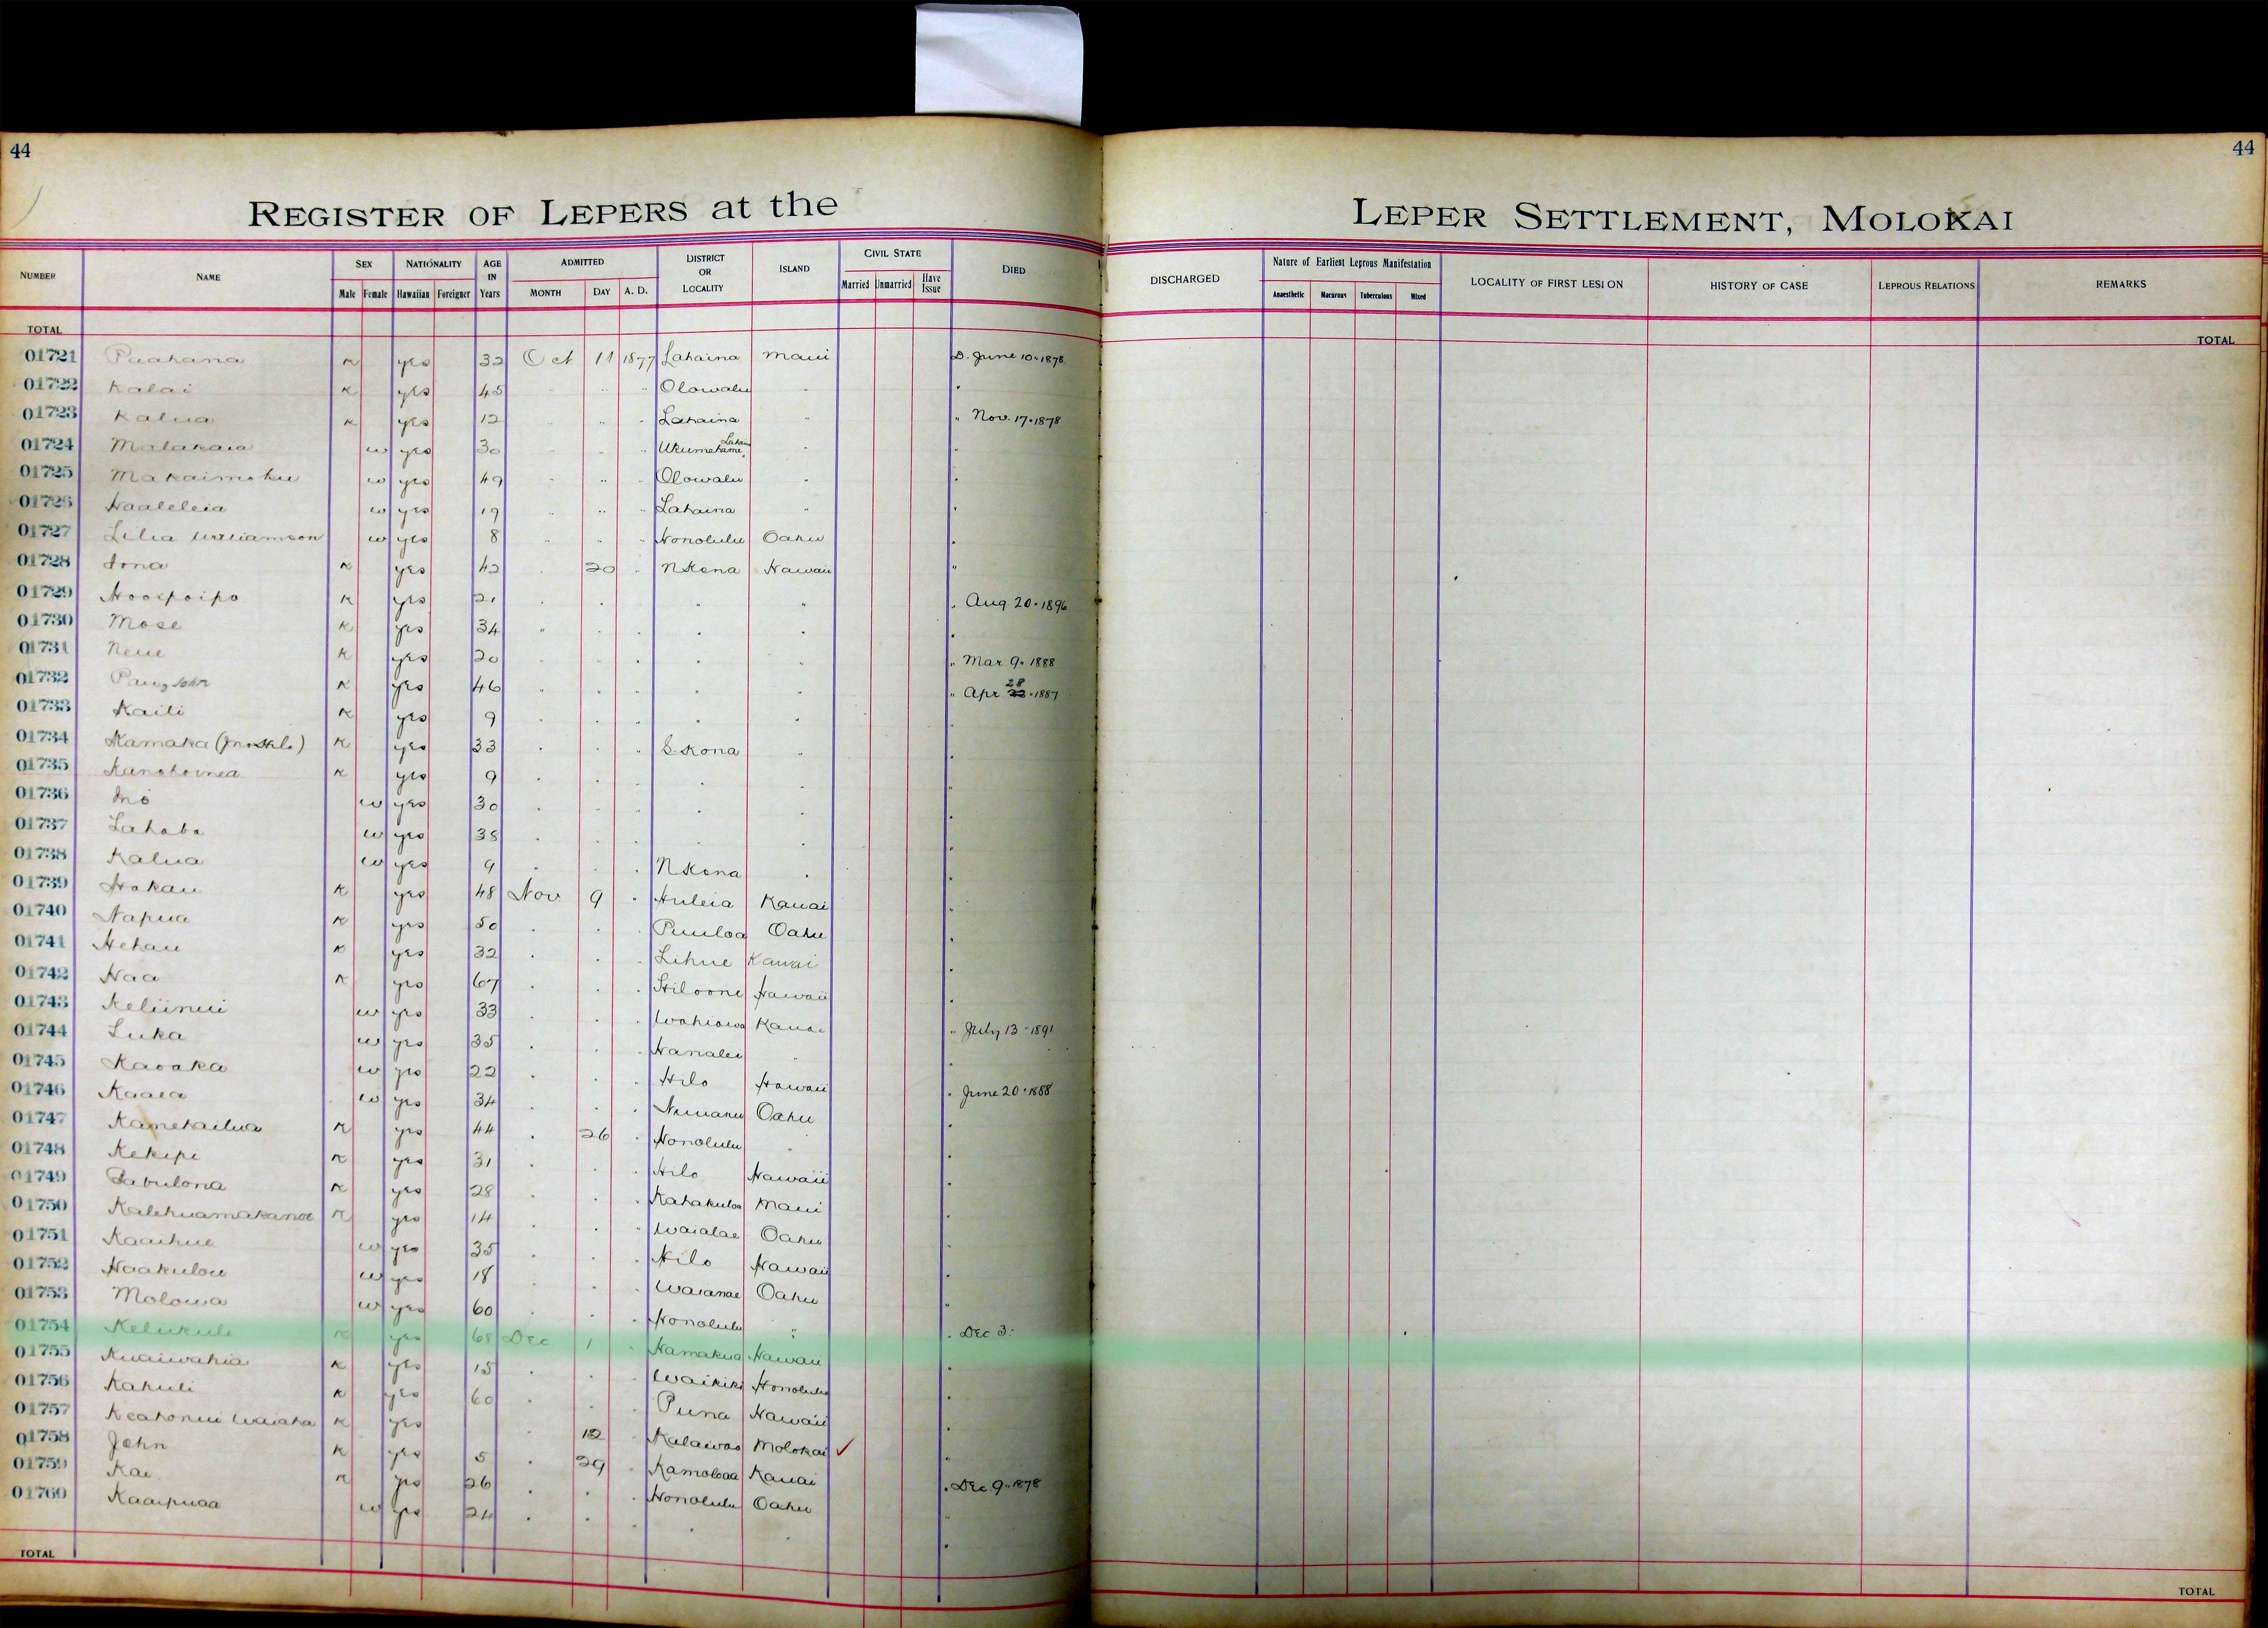 44
44
REGISTER OF LEPERS at the LEPER SETTLEMENT, MOLOKAI
NUMBER NAME SEX NATIONALITY AGE IN Years ADMITTED DISTRICT OR LOCALITY ISLAND CIVIL STATE DIED DISCHARGED Nature of Earliest Leprous Manifestation LOCALITY OF FIRST LESION HISTORY OF CASE LEPROUS RELATIONS REMARKS
Male Female Hawaiian Foreigner MONTH DAY A. D. Married Unmarried Have Issue Anaesthetic Macurous Tuberculous Mixed
TOTAL TOTAL
01721 Puahana K yes 32 Oct 11 1877 Lahaina Maui D. June 10 " 1878
01722 Kalai K yes 45 " " Olowalu " "
01723 Kalua K yes 12 " " " Lahaina " " Nov. 17 " 1878
01724 Malakaia w yes 30 " " " Ukumehame " "
01725 Makaimoku w yes 49 " " " Olowalu " "
01726 Haaleleia w yes 19 " " " Lahaina " "
01727 Lilia Williamson w yes 8 " " " Honolulu Oahu "
01728 Iona K yes 42 " 20 " N Kona Hawaii "
01729 Hooipoipo K yes 21 " " " " " Aug. 20 " 1896
01730 Mose K yes 34 " " " " " "
01731 Neue K yes 20 " " " " " " Mar. 9 " 1888
01732 John K yes 46 " " " " " " Apr 28 " 1887
01733 Kaili K yes 9 " " " " "
01734 Kamaka K yes 33 " " " S. Kona " "
01735 K yes 9 " " " " "
01736 w yes 30 " " " " "
01737 Lahaba w yes 38 " " " " "
01738 Kalua w yes 9 " " " N Kona " "
01739 Hokau K yes 48 Nov 9 " Huleia Kauai "
01740 Napua K yes 50 " " " Puuloa Oahu "
01741 Hehau K yes 32 " " " Lihue Kauai "
01742 Naa K yes 67 " " " Hiloone Hawaii "
01743 Keliinui w yes 33 " " " Wahiawa Kauai " July 13 " 1891
01744 Luka w yes 35 " " " Hanalei " "
01745 Kaoaka w yes 22 " " " Hilo Hawaii " June 20 " 1888
01746 Kaaea w yes 34 " " " Nuuanu Oahu "
01747 Kamekailua K yes 44 " 26 " Honolulu " "
01748 Kekipi K yes 31 " " " Hilo Hawaii "
01749 Zabulona K yes 28 " " " Kahakuloa Maui "
01750 Kalehuamakanoe K yes 14 " " " Waialae Oahu "
01751 Kaaihue w yes 35 " " " Hilo Hawaii "
01752 Haakulou w yes 18 " " " Waianae Oahu "
01753 Molowa w yes 60 " " " Honolulu " " Dec 3.
01754 Kelukuli K yes 68 Dec 1 " Hamakua Hawaii "
01755 Kuaiwahia K yes 15 " " Waikiki Honolulu "
01756 Kahuli K yes 60 " " Puna Hawaii "
01757 Keahonui Waiaha K yes " 12 Kalawao Molokai ✓ "
01758 John K yes 5 " 29 " Kamoloaa Kauai " Dec 9 " 1878
01759 Kai K yes 26 " " " Honolulu Oahu "
01760 Kaaipuaa w yes 24 " " " " " "
TOTAL TOTAL